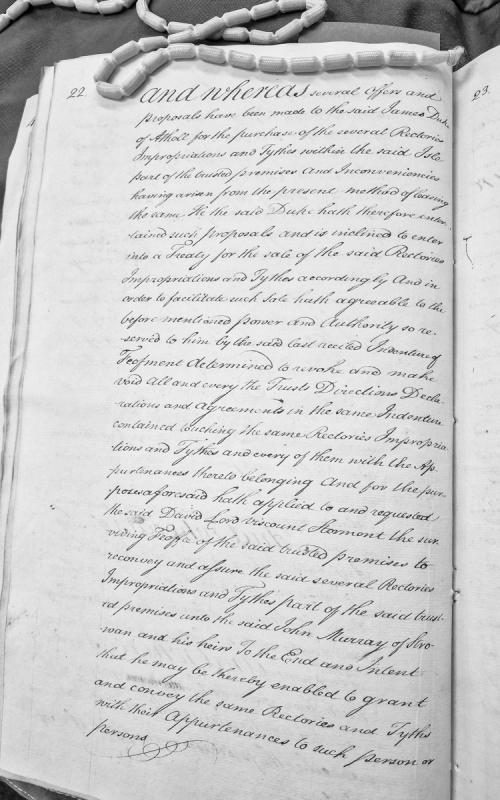 22.
And whereas several Offers and
proposals have been made to the said James Duke
of Atholl for the purchase of the several Rectories
Impropriations and Tythes within the said Isle
part of the trusted premises And Inconveniencies
having arisen from the present method of leasing
the same He the said Duke hath therefore enter-
tained such proposals and is inclined to enter
into a Treaty for the sale of the said Rectories
Impropriations and Tythes accordingly And in
order to facilitate such Sale hath agreeable to the
before mentioned power and Authority so re-
served to him by the said last recited Indenture of
Feofment determined to revoke and make
void all and every the Trusts Directions Decla-
rations and Agreements in the same Indenture
contained touching the same Rectories Impropria-
tions and Tythes and every of them with the Ap-
purtenances thereto belonging And for the pur-
poses aforesaid hath applied to and requested
the said David Lord Viscount Stormont the sur-
viving Feoffee of the said trusted premises to
reconvey and assure the said several Rectories
Impropriations and Tythes part of the said trust-
ed premises unto the said John Murray of Stro-
wan and his heirs To the End and Intent
that he may be thereby enabled to grant
and convey the same Rectories and Tyths
with their Appurtenances to such person or
persons
23.